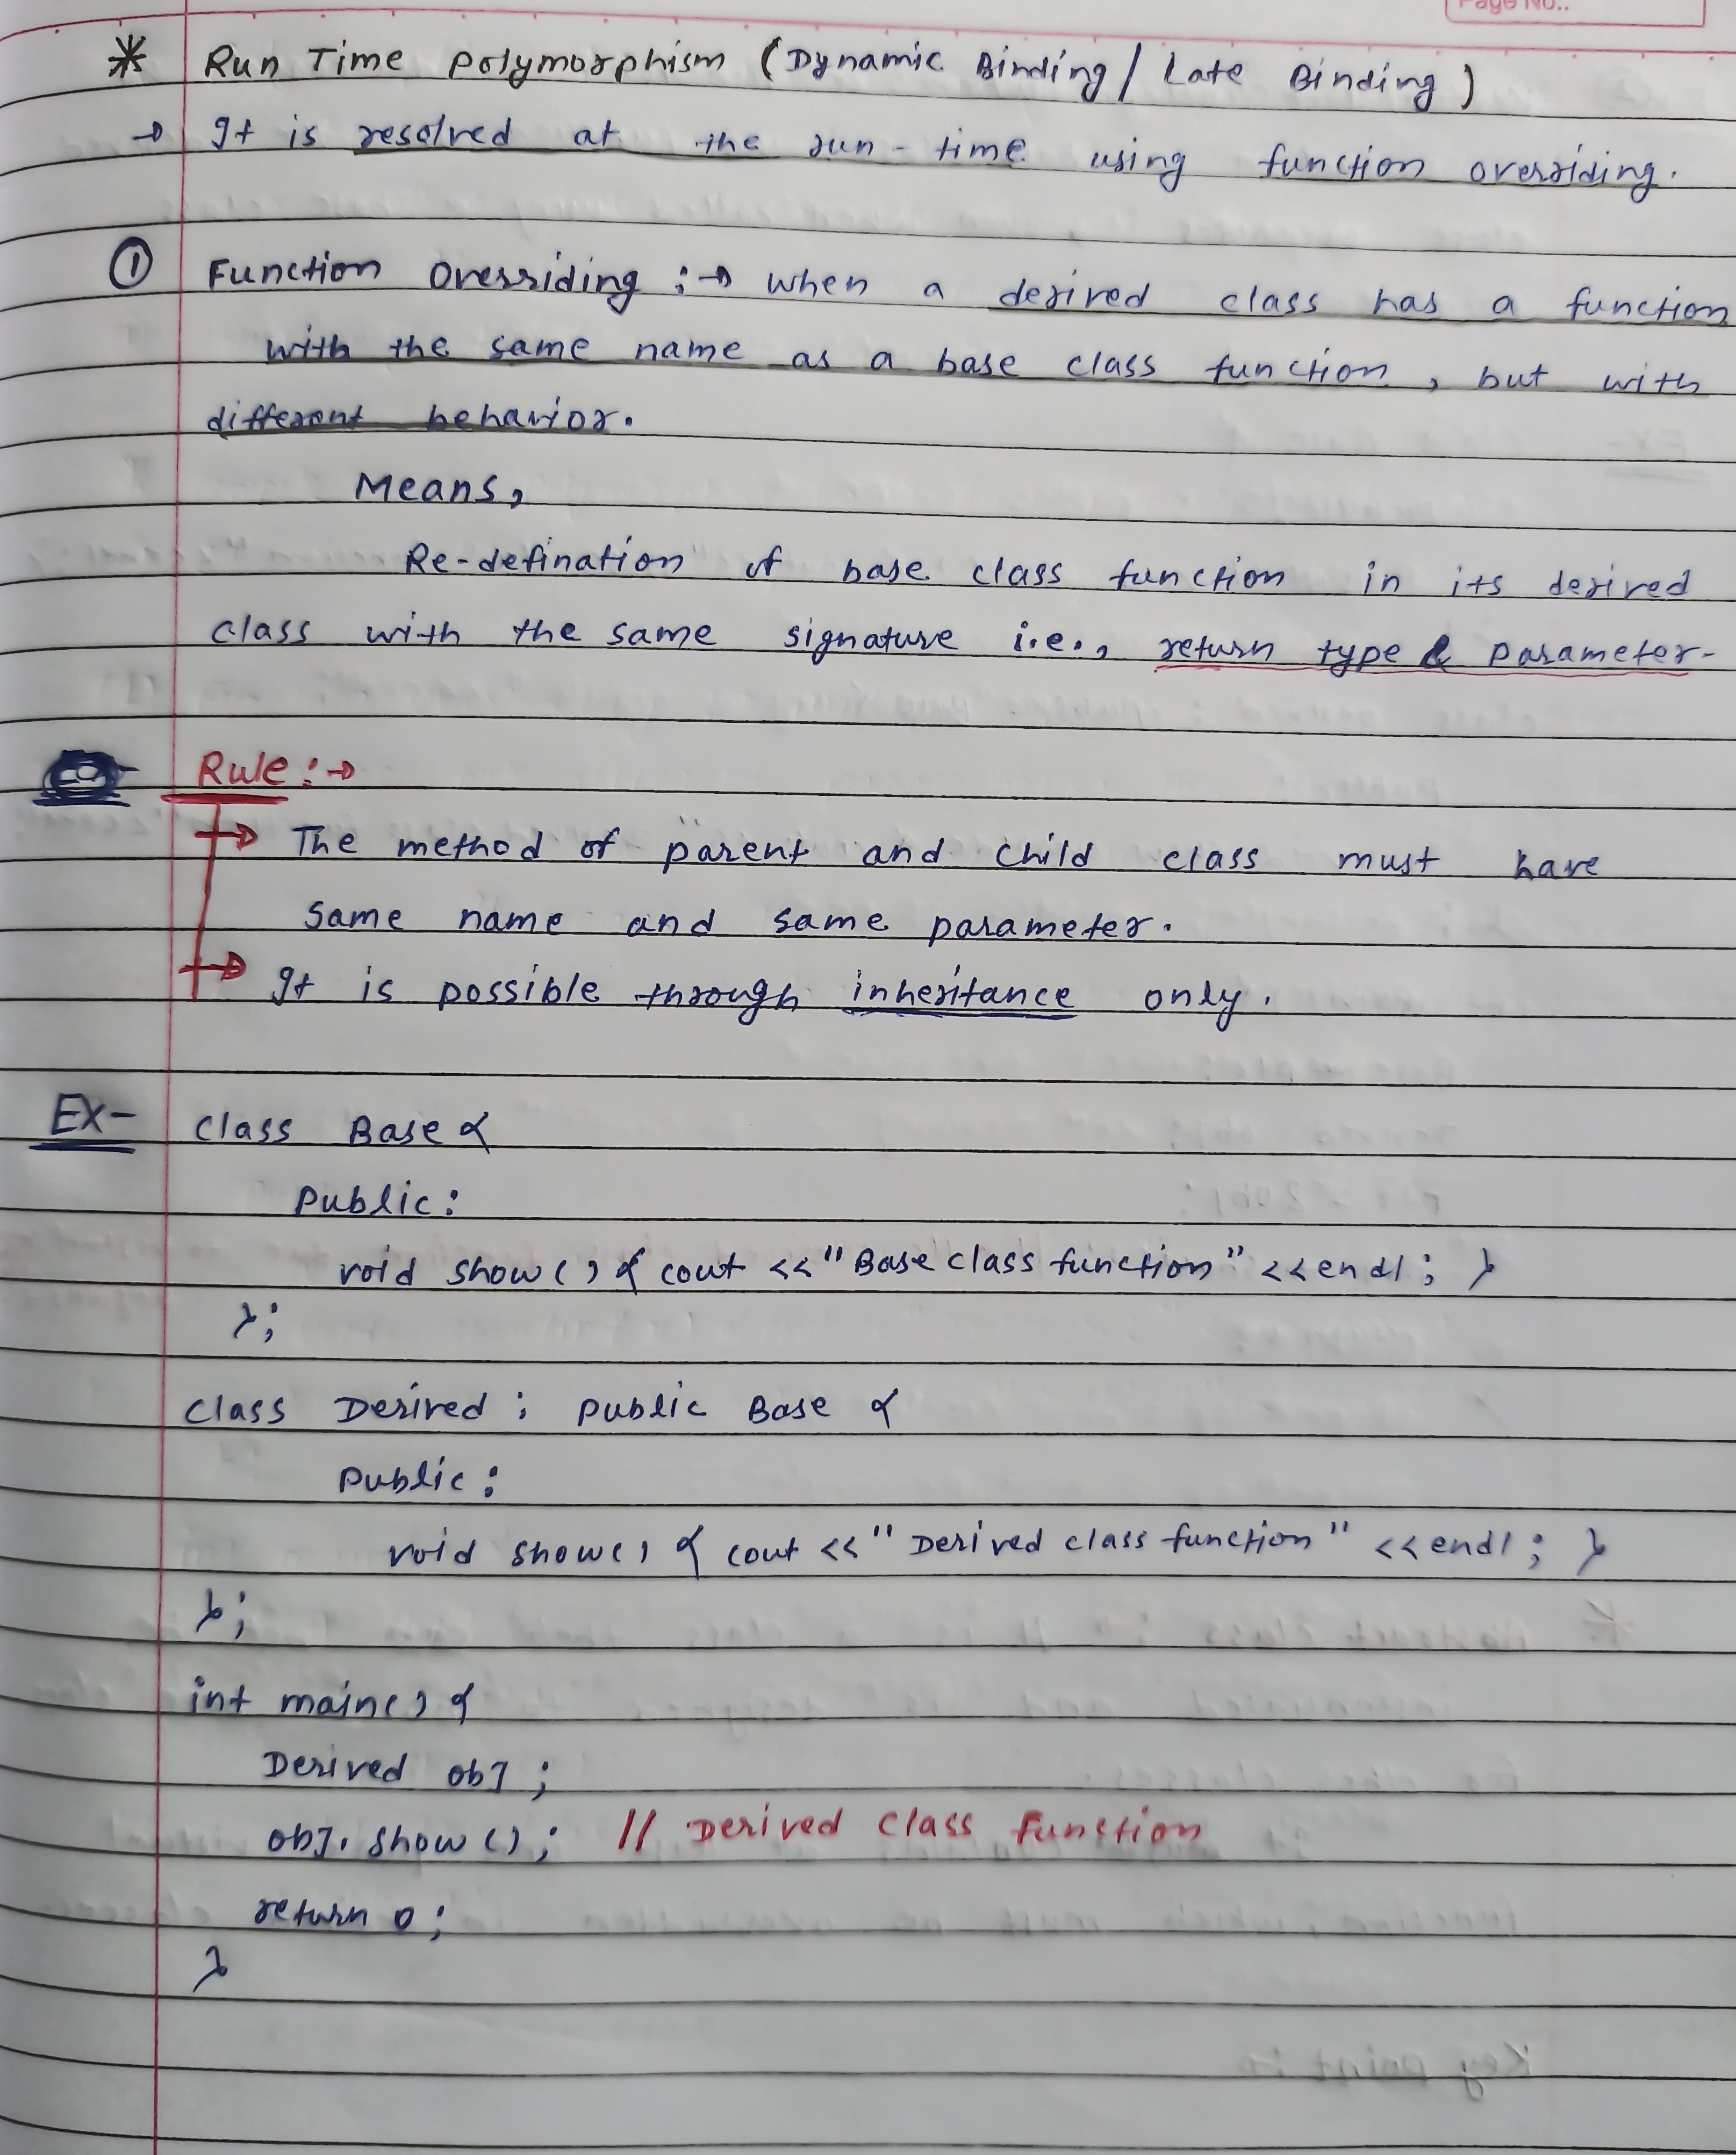 Page No..
* Run Time Polymorphism (Dynamic Binding / Late Binding)
→ It is resolved at the run-time using function overriding.
① Function Overriding :→ when a derived class has a function
with the same name as a base class function, but with
different behavior.
Means,
Re-defination of base class function in its derived
class with the same signature i.e., return type & parameter-
Rule :→
→ The method of parent and child class must have
same name and same parameter.
→ It is possible through inheritance only.
Ex- class Base {
public:
void show() { cout << "Base class function" << endl; }
};
class Derived : public Base {
public:
void show() { cout << "Derived class function" << endl; }
};
int main() {
Derived obj;
obj.show(); // Derived class function
return 0;
}